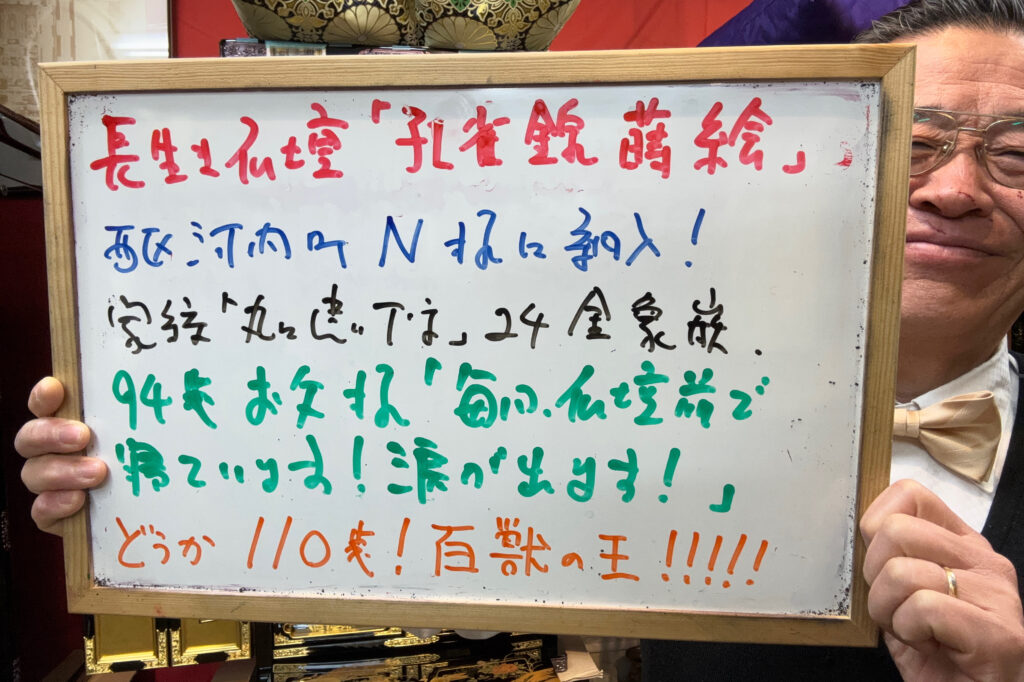 長生き仏壇「孔雀鋭蒔絵」
西区河内町N様に納入！
家紋「丸に違い下字」24金象嵌.
94才お父様「毎日、仏壇前で
寝ています！涙が出ます！」
どうか110才！百獣の王!!!!!